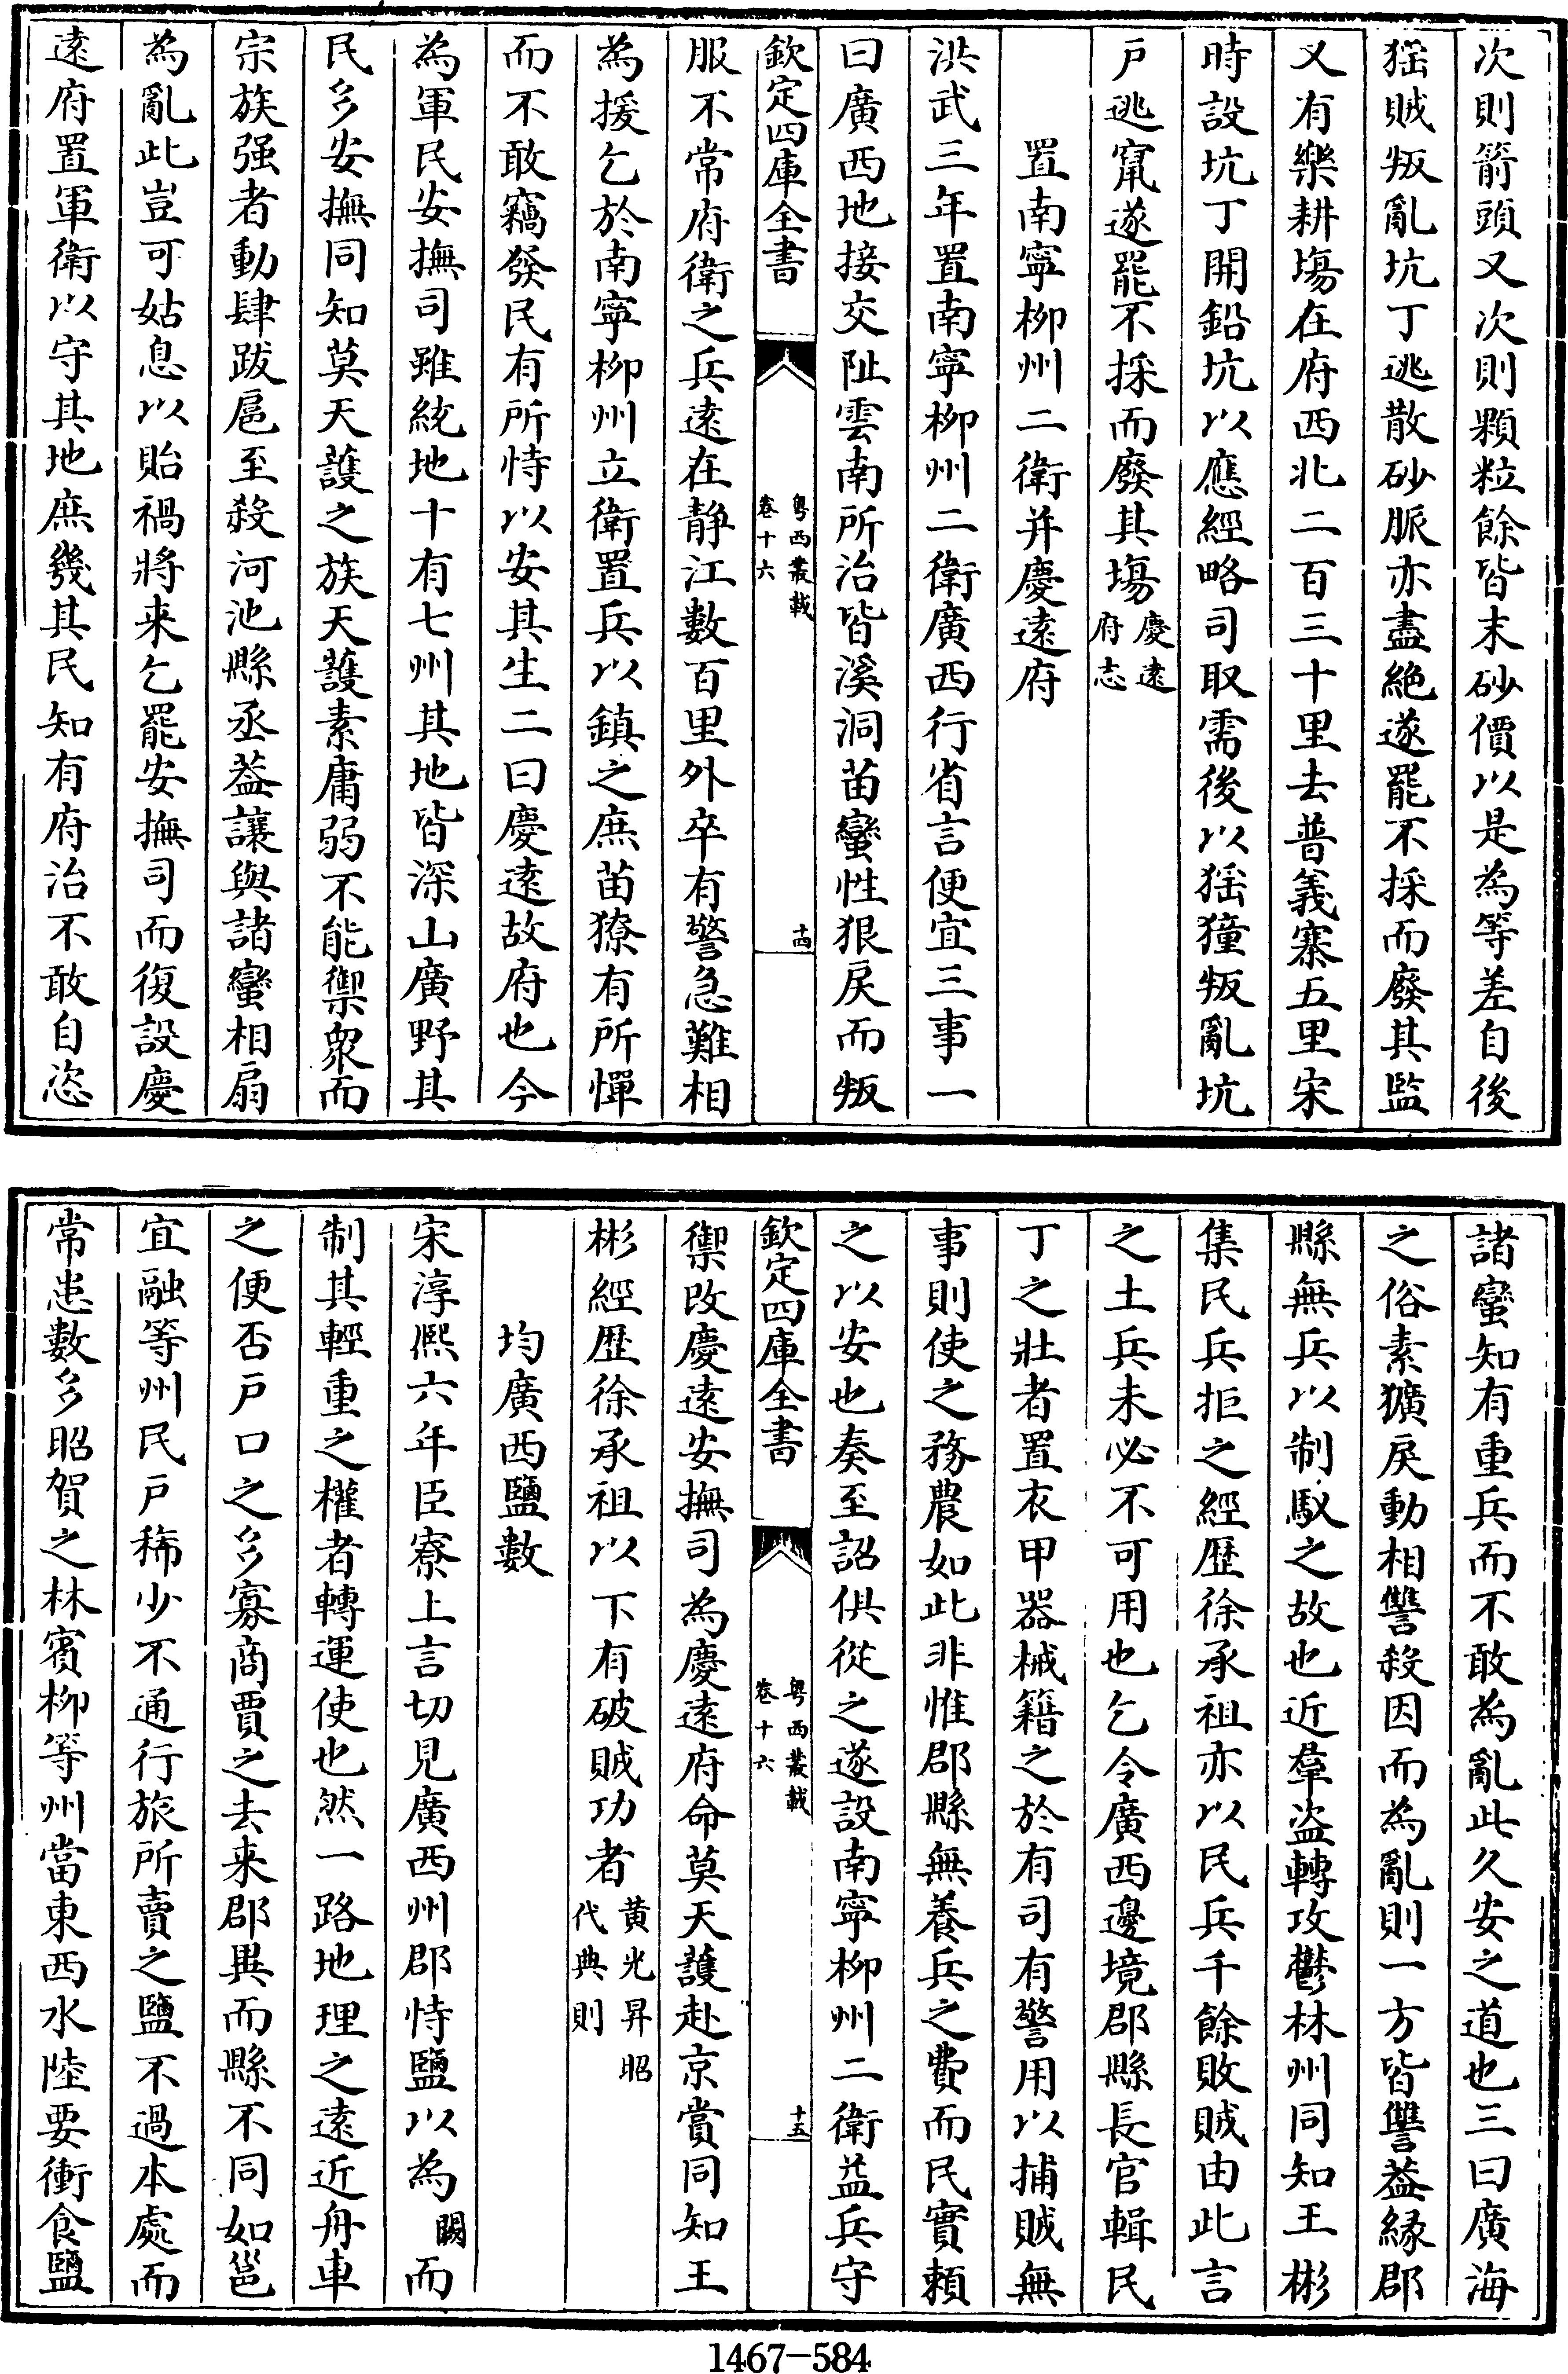 次則箭頭又次則顆粒餘皆末砂價以是為等差自後
猺賊叛亂坑丁逃散砂脈亦盡絶遂罷不採而廢其監
又有樂耕塲在府西北二百三十里去普義寨五里宋
時設坑丁開鉛坑以應經略司取需後以猺獞叛亂坑
戶逃竄遂罷不採而廢其塲慶遠府志
置南寧柳州二衛并慶遠府
洪武三年置南寧柳州二衛廣西行省言便宜三事一
曰廣西地接交趾雲南所治皆溪洞苗蠻性狠戾而叛
欽定四庫全書
粤西叢載
卷十六
十四
服不常府衛之兵遠在静江數百里外卒有警急難相
為援乞於南寧柳州立衛置兵以鎮之庶苗獠有所憚
而不敢竊發民有所恃以安其生二曰慶遠故府也今
為軍民安撫司雖統地十有七州其地皆深山廣野其
民多安撫同知莫天護之族天護素庸弱不能禦衆而
宗族强者動肆跋扈至殺河池縣丞葢讓與諸蠻相扇
為亂此豈可姑息以貽禍將来乞罷安撫司而復設慶
遠府置軍衛以守其地庶幾其民知有府治不敢自恣
諸蠻知有重兵而不敢為亂此久安之道也三曰廣海
之俗素獷戾動相讐殺因而為亂則一方皆讐葢緣郡
縣無兵以制馭之故也近羣盗轉攻鬱林州同知王彬
集民兵拒之經歴徐承祖亦以民兵千餘敗賊由此言
之土兵未必不可用也乞令廣西邊境郡縣長官輯民
丁之壯者置衣甲器械籍之於有司有警用以捕賊無
事則使之務農如此非惟郡縣無養兵之費而民實賴
之以安也奏至詔俱從之遂設南寧柳州二衛益兵守
欽定四庫全書
粤西叢載
卷十六
十五
禦改慶遠安撫司為慶遠府命莫天護赴京賞同知王
彬經歴徐承祖以下有破賊功者黄光昇昭代典則
均廣西鹽數
宋淳熙六年臣寮上言切見廣西州郡恃鹽以為闕而
制其輕重之權者轉運使也然一路地理之遠近舟車
之便否戶口之多寡商賈之去来郡異而縣不同如邕
宜融等州民戶稀少不通行旅所賣之鹽不過本處而
常患數多昭賀之林賓柳等州當東西水陸要衝食鹽
1467-584